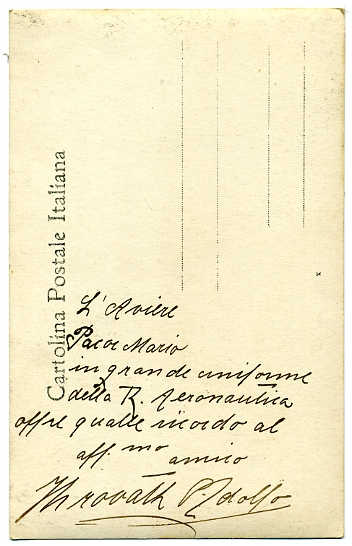 Cartolina Postale Italiana
L'Aviere
Pacor Mario
in grande uniforme
della R. Aeronautica
offre quale ricordo al
aff.mo amico
Hrovath Adolfo